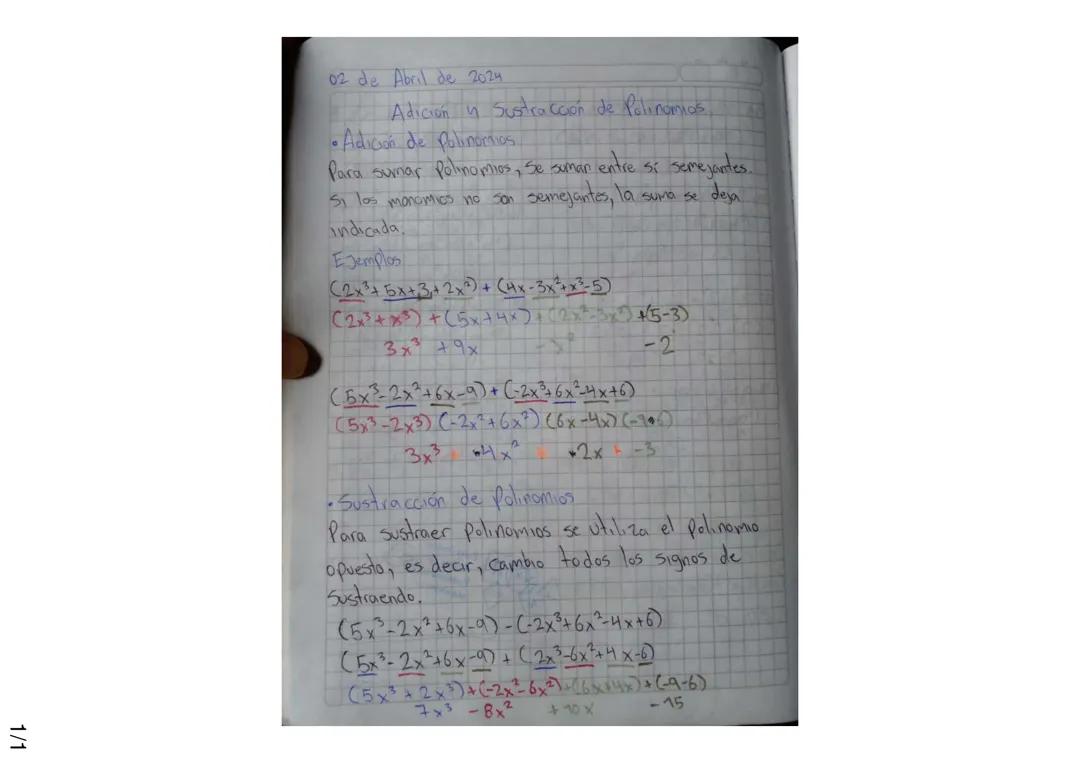 02 de Abril de 2024
Adición y Sustracción de Polinomios
• Adición de Polinomios
Para sumar Polinomios, se suman entre sí semejantes.
Si los monomios no son semejantes, la suma se deja
indicada.
Ejemplos
(2x³+5x+3+2x²)+(4x-3x²+x³-5)
(2x³+x³)+(5x+4x)+(2x²-3x²)+(5-3)
3x³ +9x -x² -2
(5x³-2x²+6x-9)+(-2x³+6x²-4x+6)
(5x³-2x³)(-2x²+6x²)(6x-4x)(-9+6)
3x³ + 4x² + 2x + -3
• Sustracción de Polinomios
Para sustraer Polinomios se utiliza el Polinomio
opuesto, es decir, cambio todos los signos de
Sustraendo.
(5x³-2x²+6x-9)-(-2x³+6x²-4x+6)
(5x³-2x²+6x-9)+(2x³-6x²+4x-6)
(5x³+2x³)+(-2x²-6x²)+(6x+4x)+(-9-6)
7x³ -8x² +10x -15
1/1